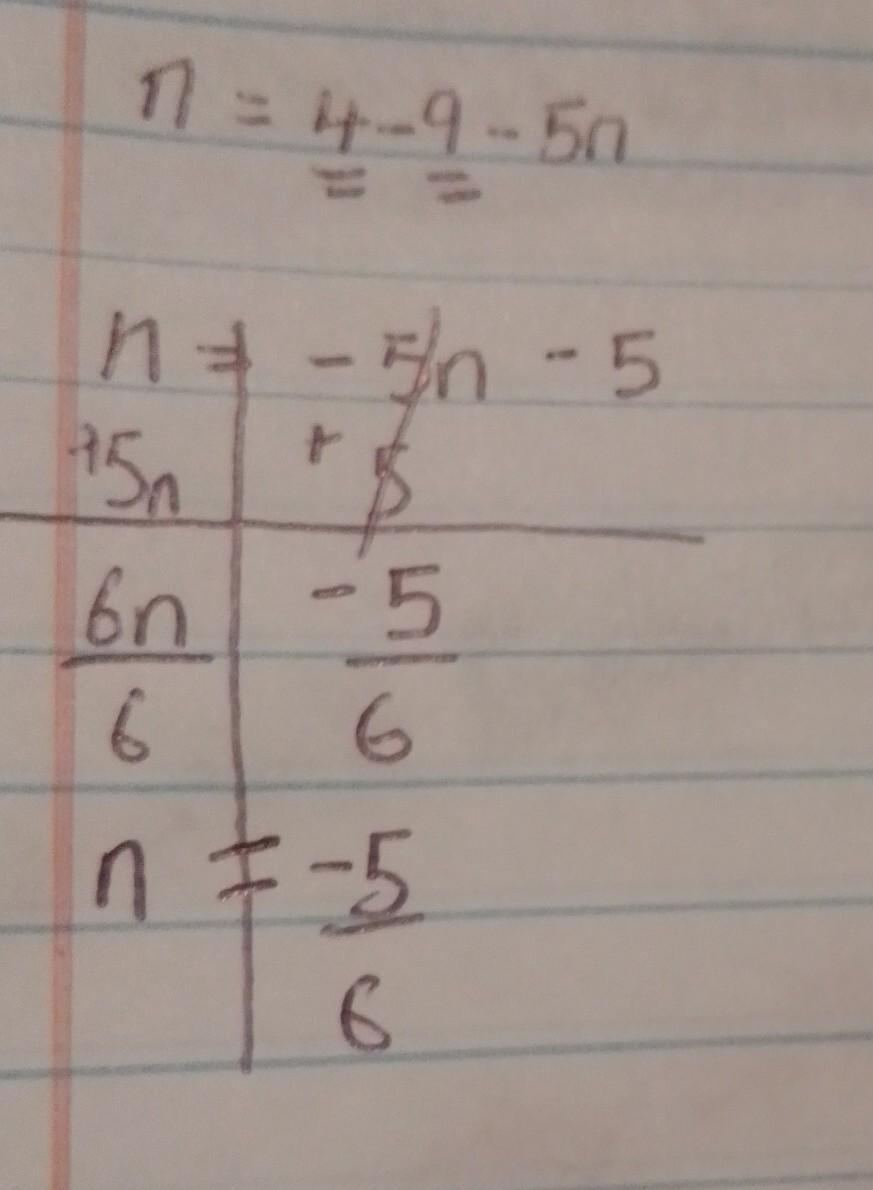 n = 4 - 9 - 5n
n = - 5n - 5
+5n + 5
6n - 5
6 6
n = -5
6